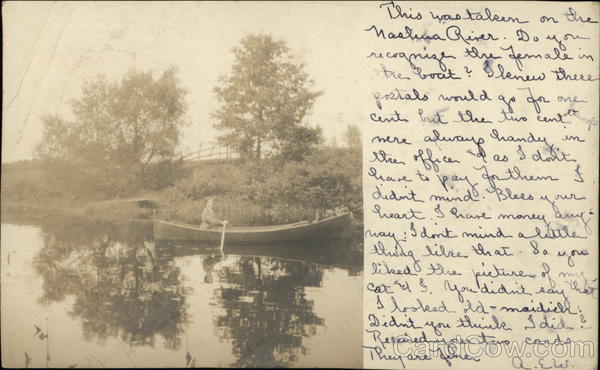 This was taken on the
Nashua River. Do you
recognize the female in
the boat? I knew these
postals would go for one
cent but the two cent stamps
were always handy in
the office & as I don't
have to pay for them I
didn't mind. Bless your
heart. I have money any-
way: I dont mind a little
thing like that. So you
liked the picture of my
cat & I. You didn't say that
I looked old-maidish.
Didn't you think I did?
Received your two cards.
They are fine.
A.E.W.
CardCow.com